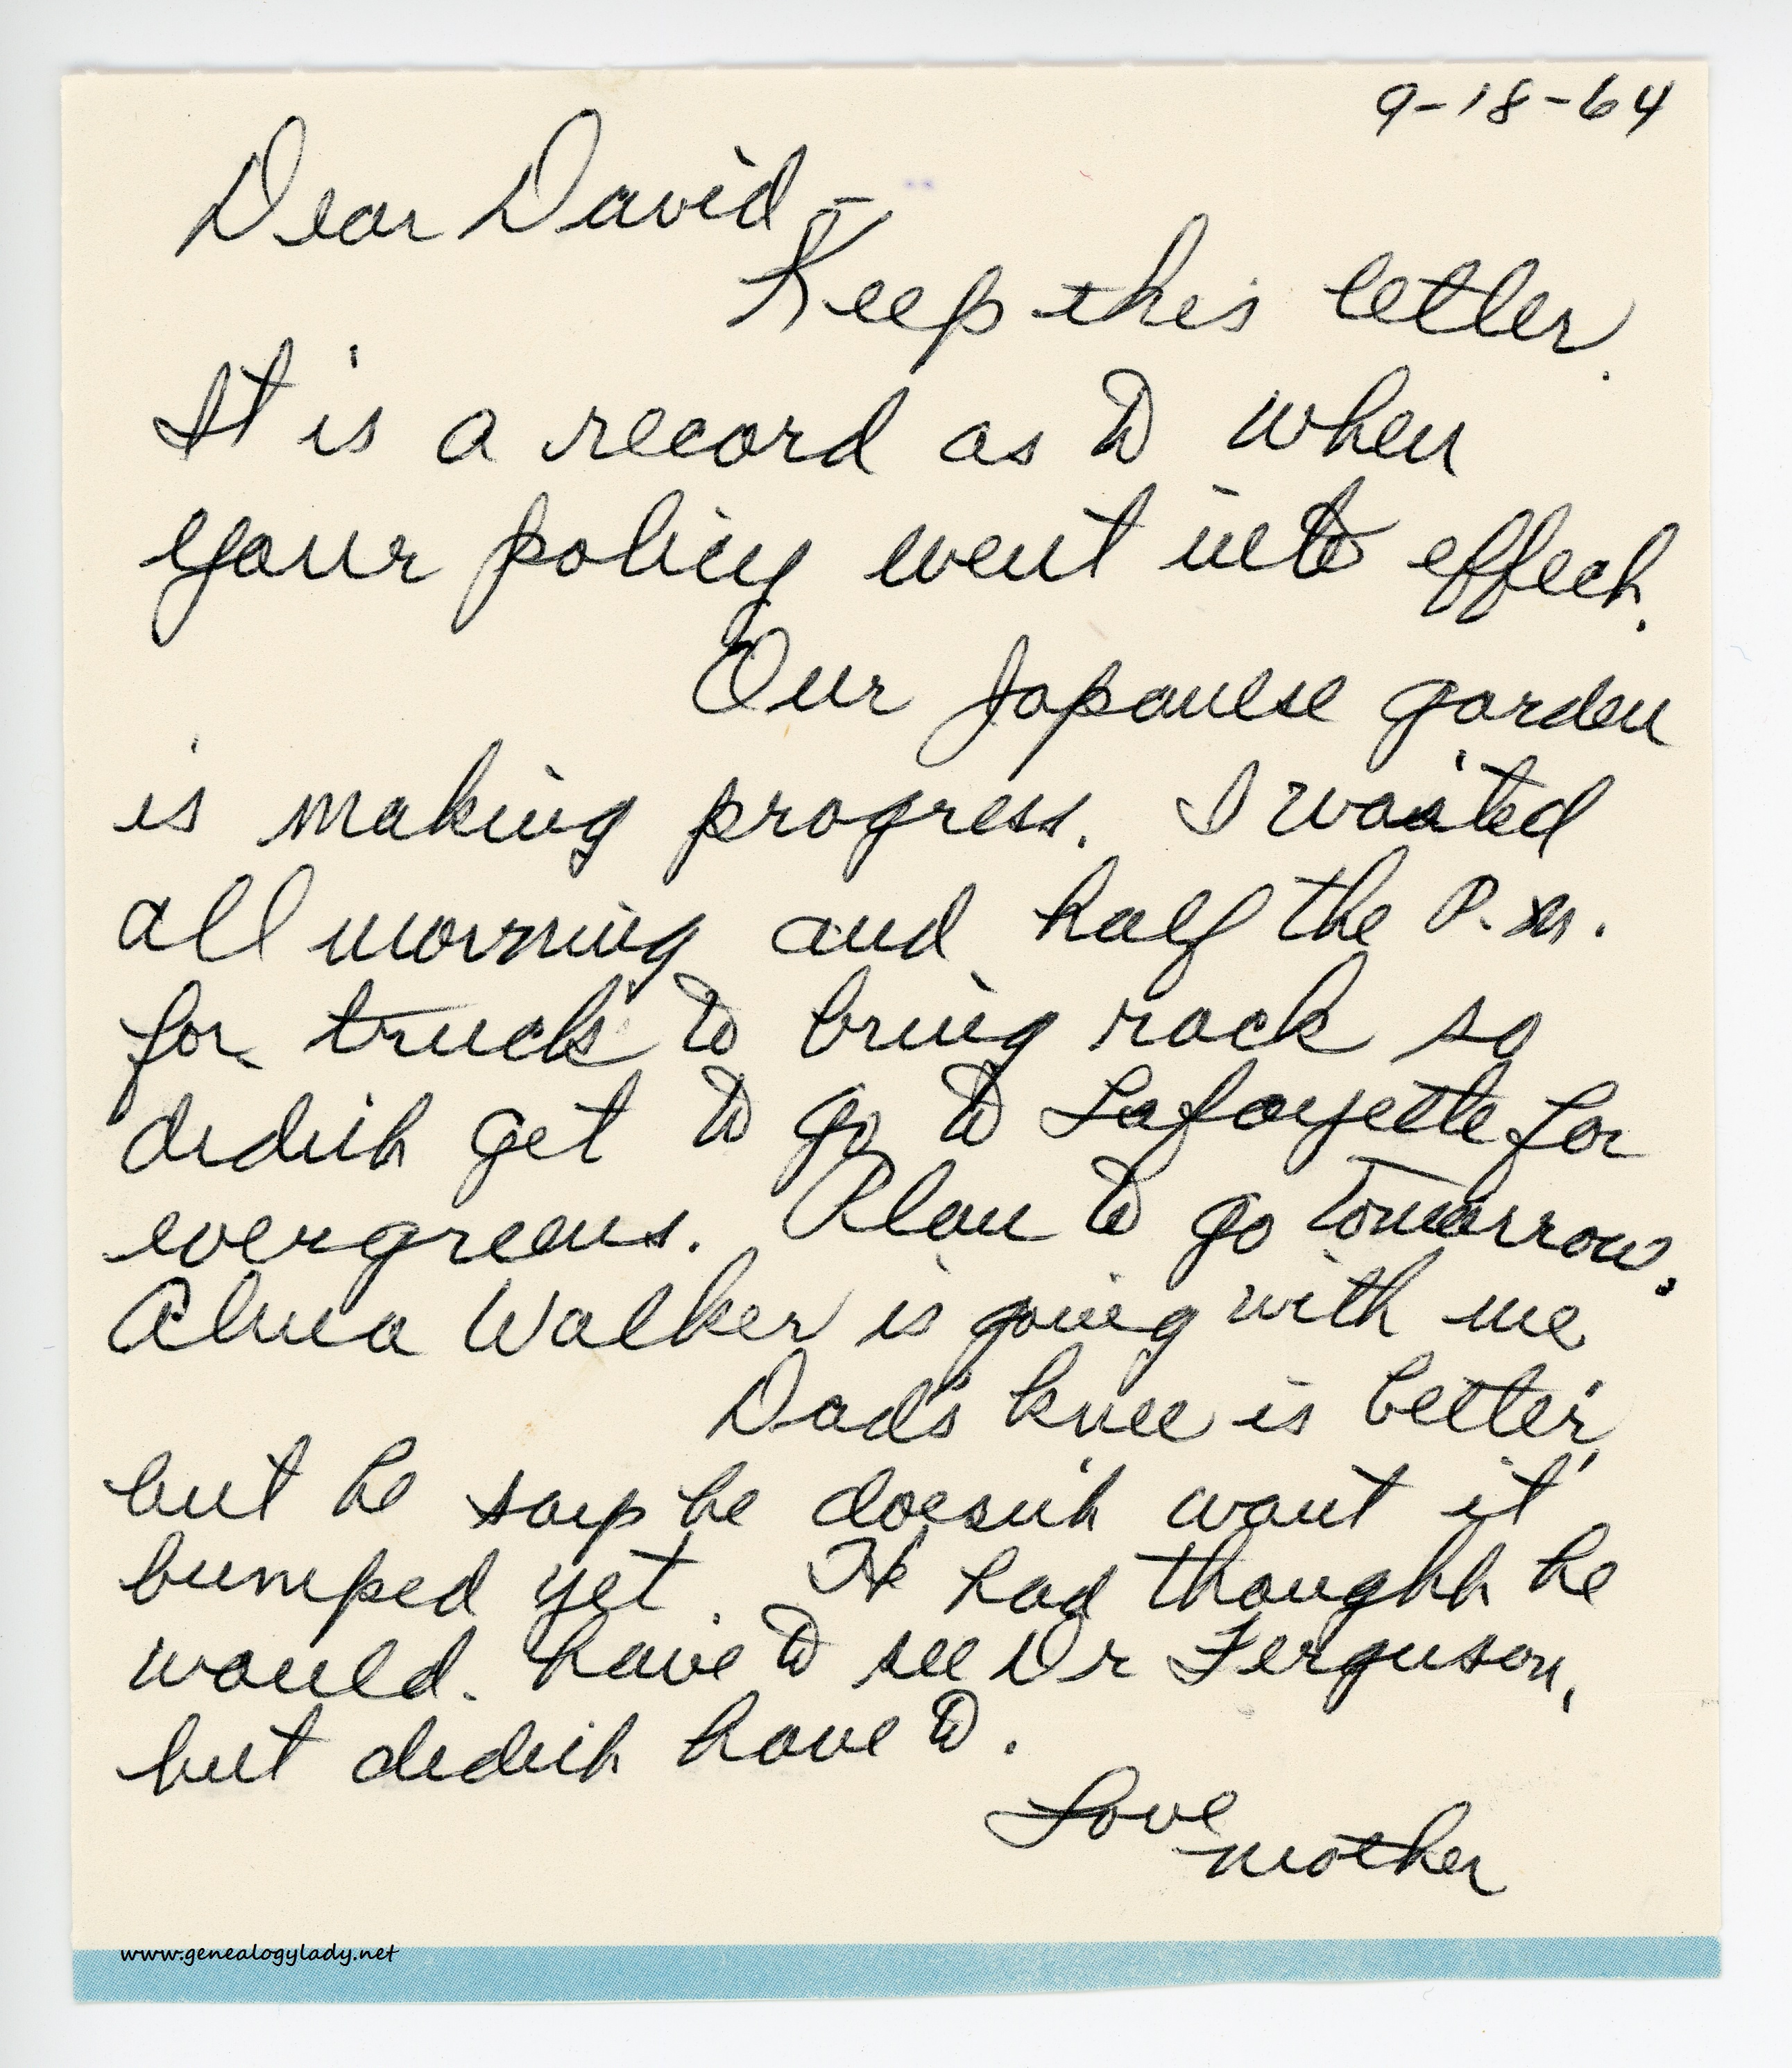 9-18-64
Dear David –
Keep this letter.
It is a record as to when
your policy went into effect.
Our Japanese garden
is making progress. I waited
all morning and half the P.M.
for truck to bring rock so
didn't get to go to Lafayette for
evergreens. Plan to go tomorrow.
Alma Walker is going with me
Dad's knee is better,
but he says he doesn't want it
bumped yet. He had thought he
would have to see Dr Ferguson,
but didn't have to.
Love
Mother
www.genealogylady.net